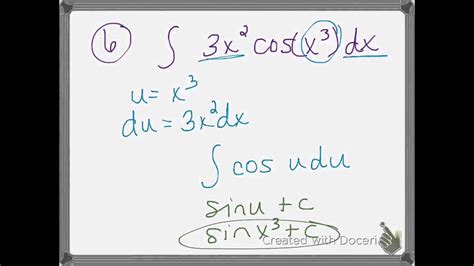 6 ∫ 3x² cos(x³) dx
u = x³
du = 3x²dx
∫ cos u du
sin u + c
sin x³ + c
Created with Doceri